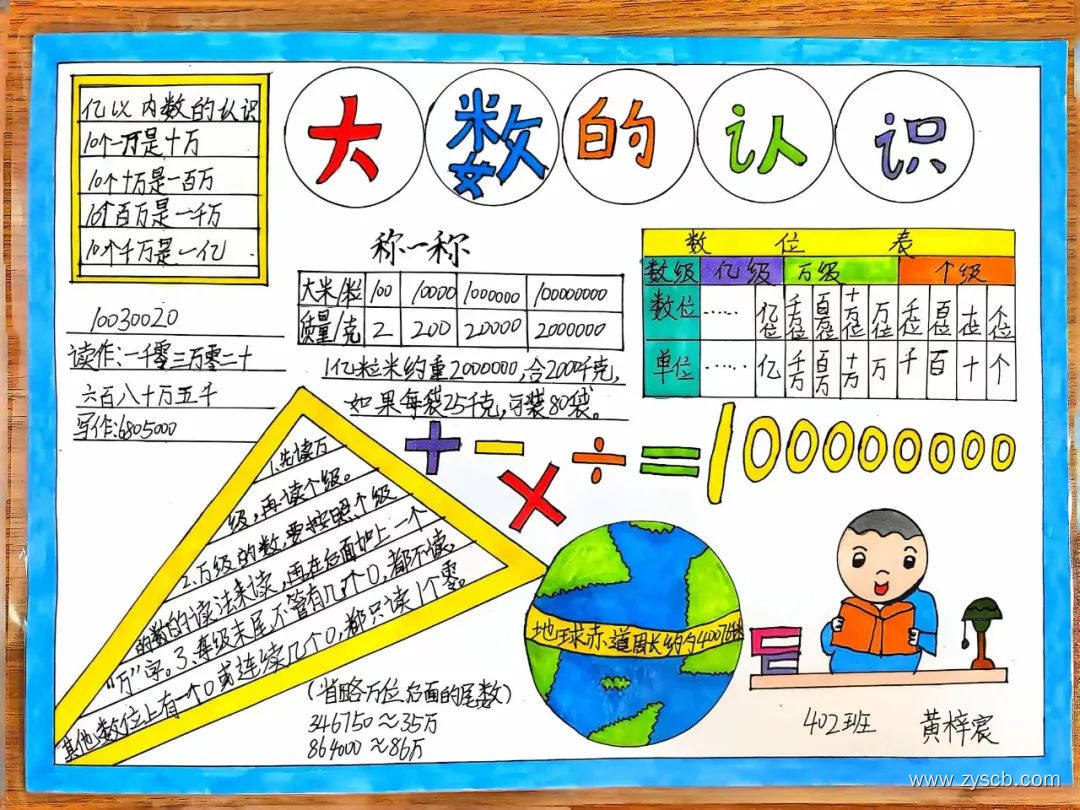 大数的认识
亿以内数的认识
10个一万是十万
10个十万是一百万
10个百万是一千万
10个千万是一亿
10030020
读作:一千零三万零二十
六百八十万五千
写作:6805000
称一称
大米/粒 100 10000 1000000 100000000
质量/克 2 200 20000 2000000
1亿粒米约重2000000,合2000千克,
如果每袋25千克,可装80袋。
数位表
数级 亿级 万级 个级
数位 …… 亿位 千万位 百万位 十万位 万位 千位 百位 十位 个位
单位 …… 亿 千万 百万 十万 万 千 百 十 个
+-×÷=100000000
1.先读万
级,再读个级。
2.万级的数,要按照个级
的数的读法来读,再在后面加上一个
"万"字。3.每级末尾不管有几个0,都不读,
其他数位上有一个0或连续几个0,都只读1个零。
地球赤道周长约
(省略万位后面的尾数)
346750≈35万
864000≈86万
402班 黄梓宸
www.zyscb.com